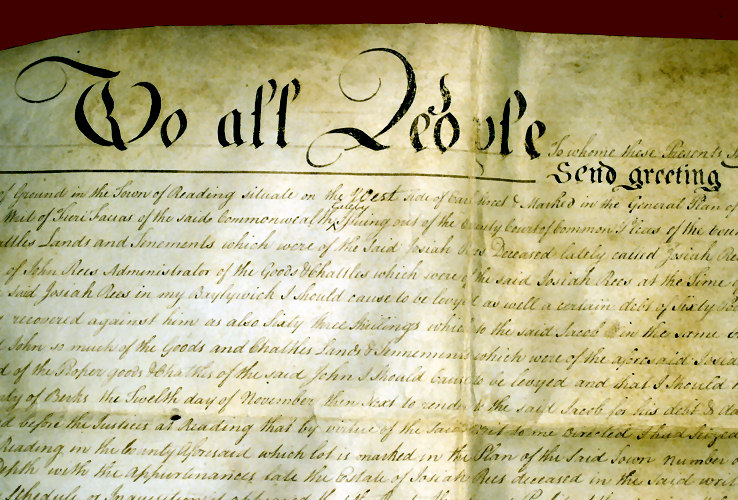 To all People
To whome these Presents
Send greeting
of Ground in the Town of Reading situate on the West side of Earl Street & Marked in the General Plan of
Writ of Fieri Facias of the said Commonwealth Issuing out of the County Court of Common Pleas of the
Lands and Tenements which were of the said Josiah Rees Deceased lately called Josiah
of John Rees Administrator of the Goods & Chattles which were of the said Josiah Rees at the Time
said Josiah Rees in my Baylywick I should cause to be levyed as well a certain debt of Sixty
recovered against him as also Sixty three Shillings which to the said Jacob in the same
John so much of the Goods and Chattles Lands & Tennements which were of the aforesaid
of the Proper goods & Chattles of the said John I Should Cause to be levyed and that I Should
of Berks the Twelfth day of November then next to render to the said Jacob for his debt &
before the Justices at Reading that by virtue of the said writ to me Directed I had Seized
Reading in the County Aforesaid which lot is marked in the Plan of the Said Town number
Depth with the Appurtenances late the Estate of Josiah Rees deceased in the Said writ
Schedule or Inquisition